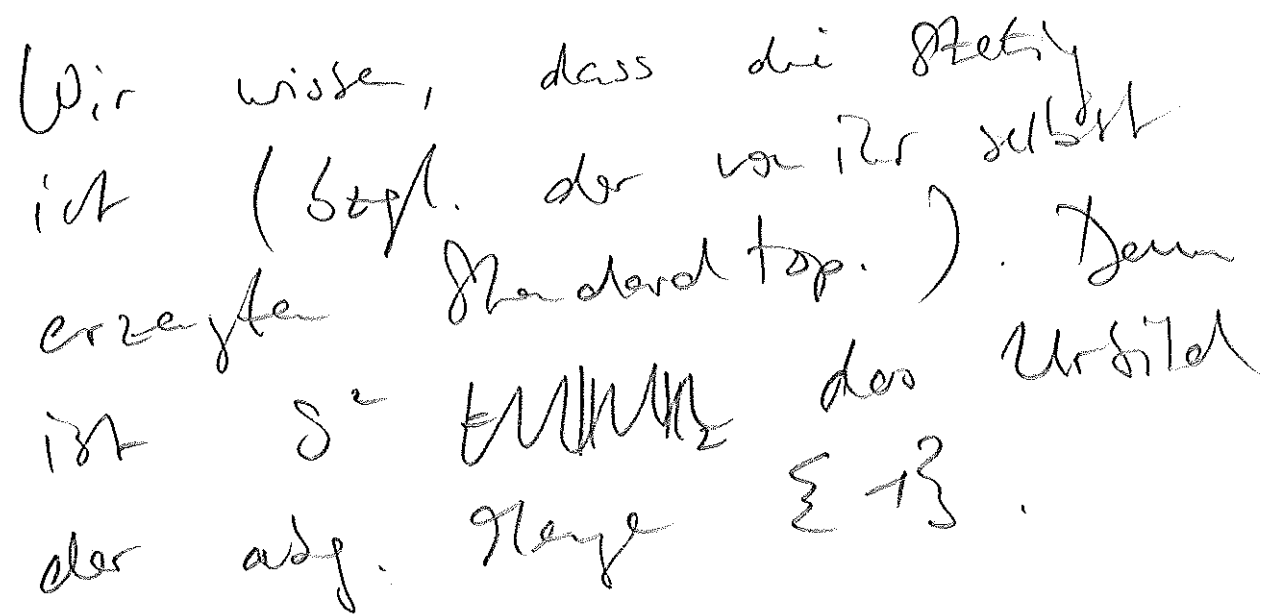 Wir wissen, dass die stetig
ist (bzgl. der von ihr selbst
erzeugten Standardtop.). Dann
ist S² das Urbild
der abg. Menge {1}.